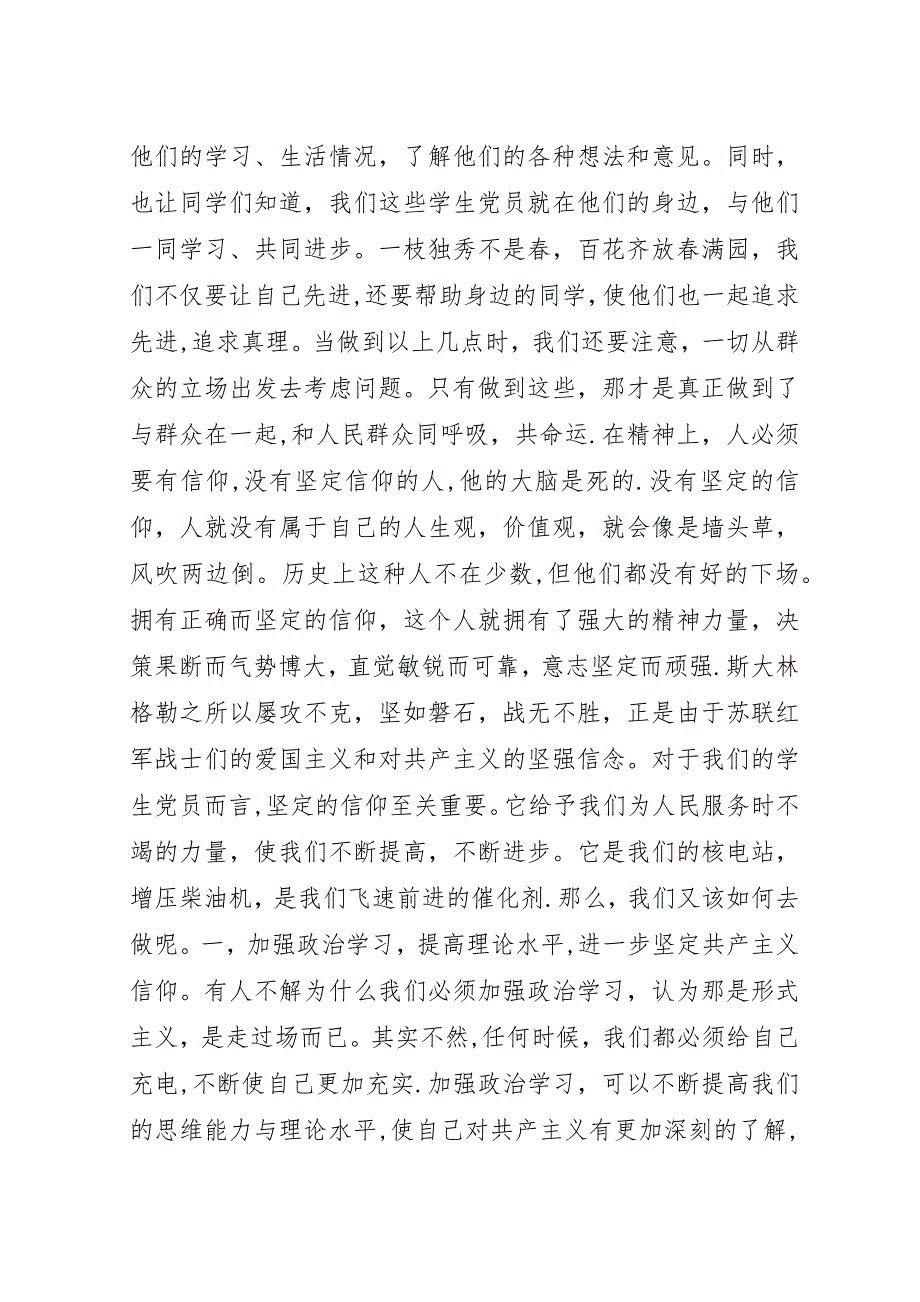 他们的学习、生活情况，了解他们的各种想法和意见。同时，
也让同学们知道，我们这些学生党员就在他们的身边，与他们
一同学习、共同进步。一枝独秀不是春，百花齐放春满园，我
们不仅要让自己先进,还要帮助身边的同学,使他们也一起追求
先进,追求真理。当做到以上几点时，我们还要注意，一切从群
众的立场出发去考虑问题。只有做到这些，那才是真正做到了
与群众在一起,和人民群众同呼吸，共命运.在精神上，人必须
要有信仰,没有坚定信仰的人,他的大脑是死的.没有坚定的信
仰，人就没有属于自己的人生观，价值观，就会像是墙头草，
风吹两边倒。历史上这种人不在少数,但他们都没有好的下场。
拥有正确而坚定的信仰，这个人就拥有了强大的精神力量，决
策果断而气势博大，直觉敏锐而可靠，意志坚定而顽强.斯大林
格勒之所以屡攻不克，坚如磐石，战无不胜，正是由于苏联红
军战士们的爱国主义和对共产主义的坚强信念。对于我们的学
生党员而言,坚定的信仰至关重要。它给予我们为人民服务时不
竭的力量，使我们不断提高，不断进步。它是我们的核电站，
增压柴油机，是我们飞速前进的催化剂.那么，我们又该如何去
做呢。一，加强政治学习，提高理论水平,进一步坚定共产主义
信仰。有人不解为什么我们必须加强政治学习，认为那是形式
主义，是走过场而已。其实不然,任何时候，我们都必须给自己
充电,不断使自己更加充实.加强政治学习，可以不断提高我们
的思维能力与理论水平,使自己对共产主义有更加深刻的了解,